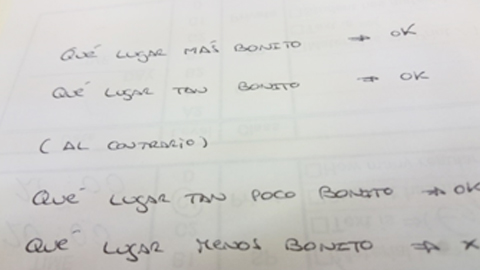 QUÉ LUGAR MÁS BONITO → OK
QUÉ LUGAR TAN BONITO → OK
(AL CONTRARIO)
QUÉ LUGAR TAN POCO BONITO → OK
QUÉ LUGAR MENOS BONITO → X